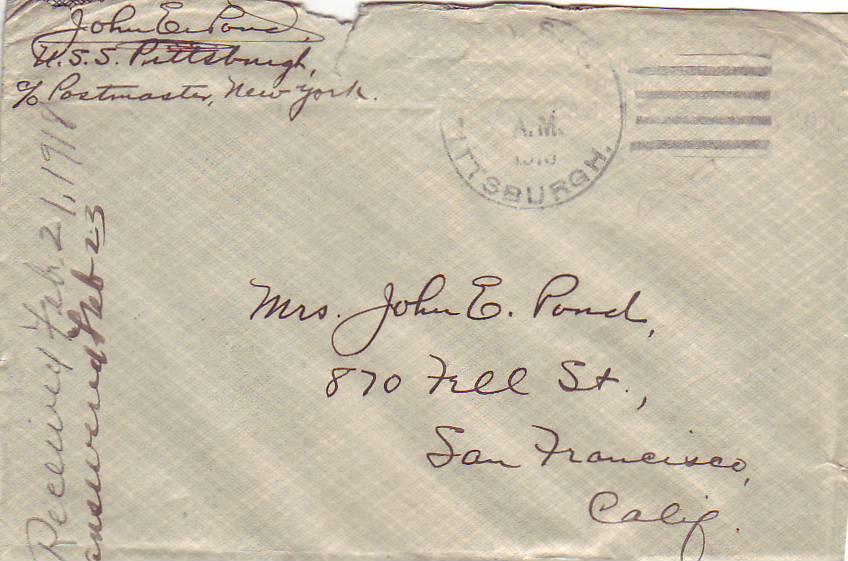 John E. Pond,
U.S.S. Pittsburgh,
c/o Postmaster, New York.
A.M.
PITTSBURGH.
Mrs. John E. Pond,
870 Fell St.,
San Francisco,
Calif.
Received Feb. 21, 1918
answered Feb 23